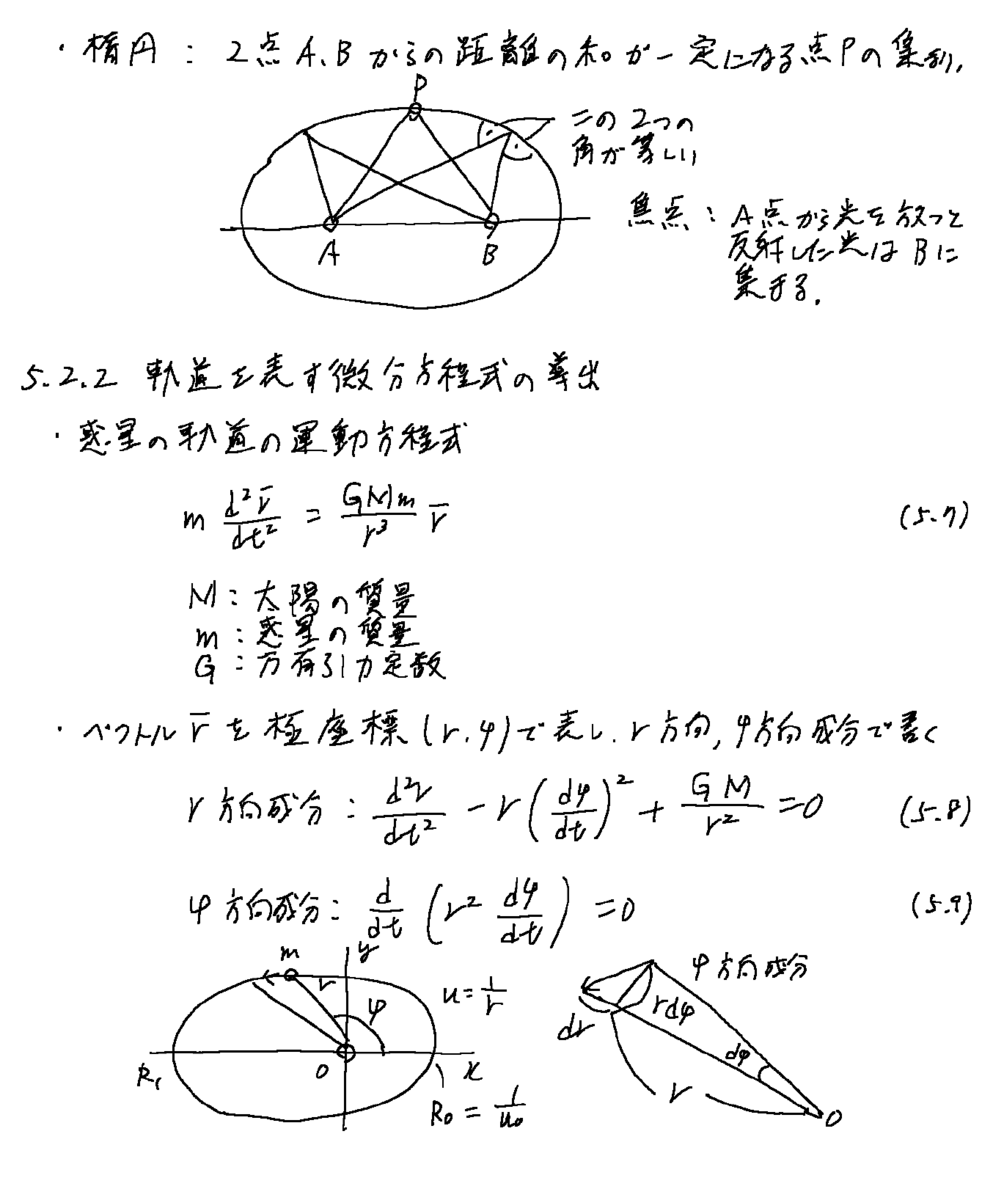 ・楕円：2点A,Bからの距離の和が一定になる点Pの集り,
P
この2つの
角が等しい
A B
焦点：A点から光を放つと
反射した光はBに
集まる.
5.2.2 軌道を表す微分方程式の導出
・惑星の軌道の運動方程式
m d²r̄/dt² = GMm/r³ r̄ (5.7)
M：太陽の質量
m：惑星の質量
G：万有引力定数
・ベクトルr̄を極座標(r,φ)で表し、r方向,φ方向成分で書く
r方向成分：d²r/dt² - r(dφ/dt)² + GM/r² = 0 (5.8)
φ方向成分：d/dt (r² dφ/dt) = 0 (5.9)
m r y φ
u = 1/r
R₁ O x
R₀ = 1/u₀
φ方向成分
dr rdφ dφ
r O